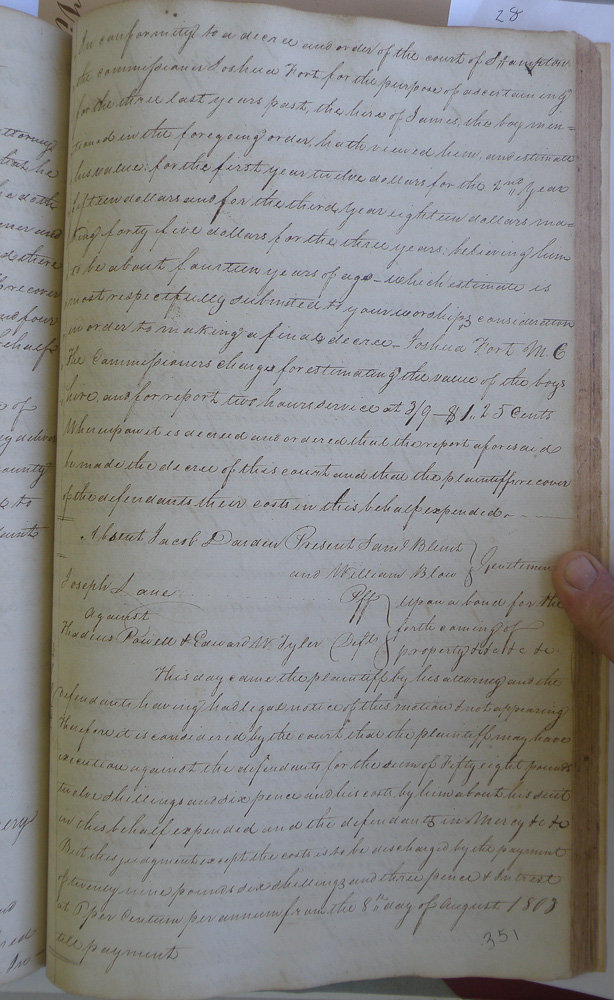 28
In conformity to a decree and order of the court of Hampton
the commissioner Joshua Fort for the purpose of ascertaining
for the three last years past, the hire of James, the boy men=
tioned in the foregoing order, hath viewed him, and estimate
his value: for the first year twelve dollars for the 2nd year
fifteen dollars and for the third year eighteen dollars ma=
king forty five dollars for the three years: believing him
to be about fourteen years of age - which estimate is
most respectfully submitted to your worships consideration
in order to making a final decree - Joshua Fort M C
The Commissioners charge for estimating the value of the boys
hire, and for report two hours service at 3/9 - $1..25 Cents
Whereupon it is decreed and ordered that the report aforesaid
be made the decree of this court and that the plaintiff recover
of the defendants their costs in this behalf expended. -
Absent Jacob Darden Present Saml Blunt
and William Blow } Gentlemen
Joseph Lane Plff
Against
Thadeus Powell & Edward W. Tyler Defts
upon a bond for the
forth coming of
property &c &c
This day came the plaintiff by his attorney and the
defendants having had legal notice of this motion & not appearing
Therefore it is considered by the court that the plaintiff may have
execution against the defendants for the sum of Fifty eight pounds
twelve shillings and six pence and his costs by him about his suit
in this behalf expended and the defendants in Mercy &c &c
But this judgment except the costs is to be discharged by the payment
of twenty nine pounds six shillings and three pence & Interest
at per Centum per annum from the 8th day of August 1803
till payment
351